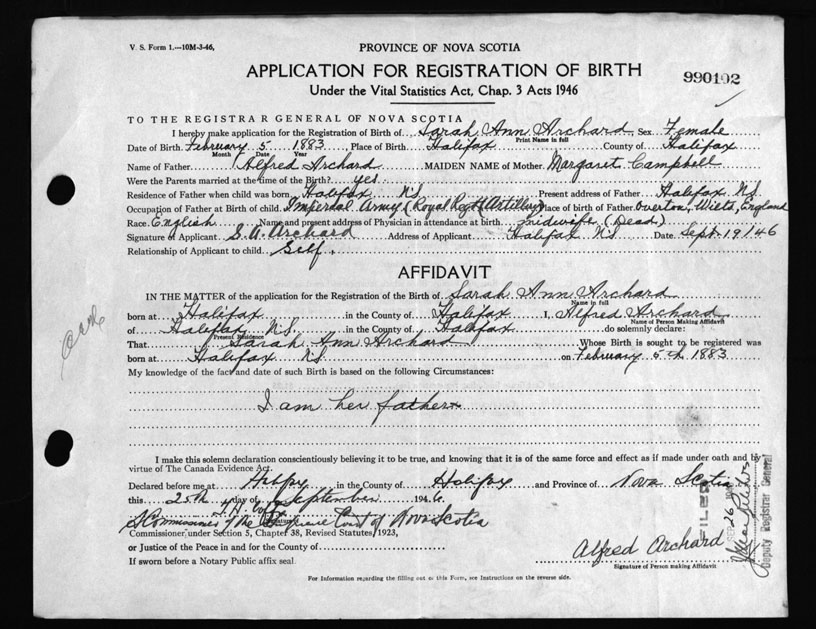 V. S. Form 1.—10M-3-46,
PROVINCE OF NOVA SCOTIA
APPLICATION FOR REGISTRATION OF BIRTH
990102
Under the Vital Statistics Act, Chap. 3 Acts 1946
TO THE REGISTRAR GENERAL OF NOVA SCOTIA
I hereby make application for the Registration of Birth of Sarah Ann Archard Sex Female
Print Name in full
Date of Birth February 5 1883 Place of Birth Halifax County of Halifax
Month Date Year
Name of Father Alfred Archard MAIDEN NAME of Mother Margaret Campbell
Were the Parents married at the time of the Birth? yes
Residence of Father when child was born Halifax N.S. Present address of Father Halifax N.S.
Occupation of Father at Birth of child Imperial Army (Royal Regt Artillery) Place of birth of Father Overton, Wilts, England
Race English Name and present address of Physician in attendance at birth midwife (Dead)
Signature of Applicant S. A. Archard Address of Applicant Halifax N.S. Date Sept. 19/46
Relationship of Applicant to child Self.
AFFIDAVIT
IN THE MATTER of the application for the Registration of the Birth of Sarah Ann Archard
Name in full
born at Halifax in the County of Halifax I, Alfred Archard
Name of Person Making Affidavit
of Halifax N.S. in the County of Halifax do solemnly declare:
Present Residence
That Sarah Ann Archard Whose Birth is sought to be registered was
born at Halifax N.S. on February 5th 1883
My knowledge of the fact and date of such Birth is based on the following Circumstances:
I am her father
I make this solemn declaration conscientiously believing it to be true, and knowing that it is of the same force and effect as if made under oath and by
virtue of The Canada Evidence Act.
Declared before me at Halifax in the County of Halifax and Province of Nova Scotia
this 25th day of September 1946.
A Commissioner of the Supreme Court of Nova Scotia
Commissioner under Section 5, Chapter 38, Revised Statutes, 1923,
or Justice of the Peace in and for the County of
If sworn before a Notary Public affix seal.
Alfred Archard
Signature of Person making Affidavit
For Information regarding the filling out of this Form, see Instructions on the reverse side.
FILED
SEP 26 1946
Deputy Registrar General